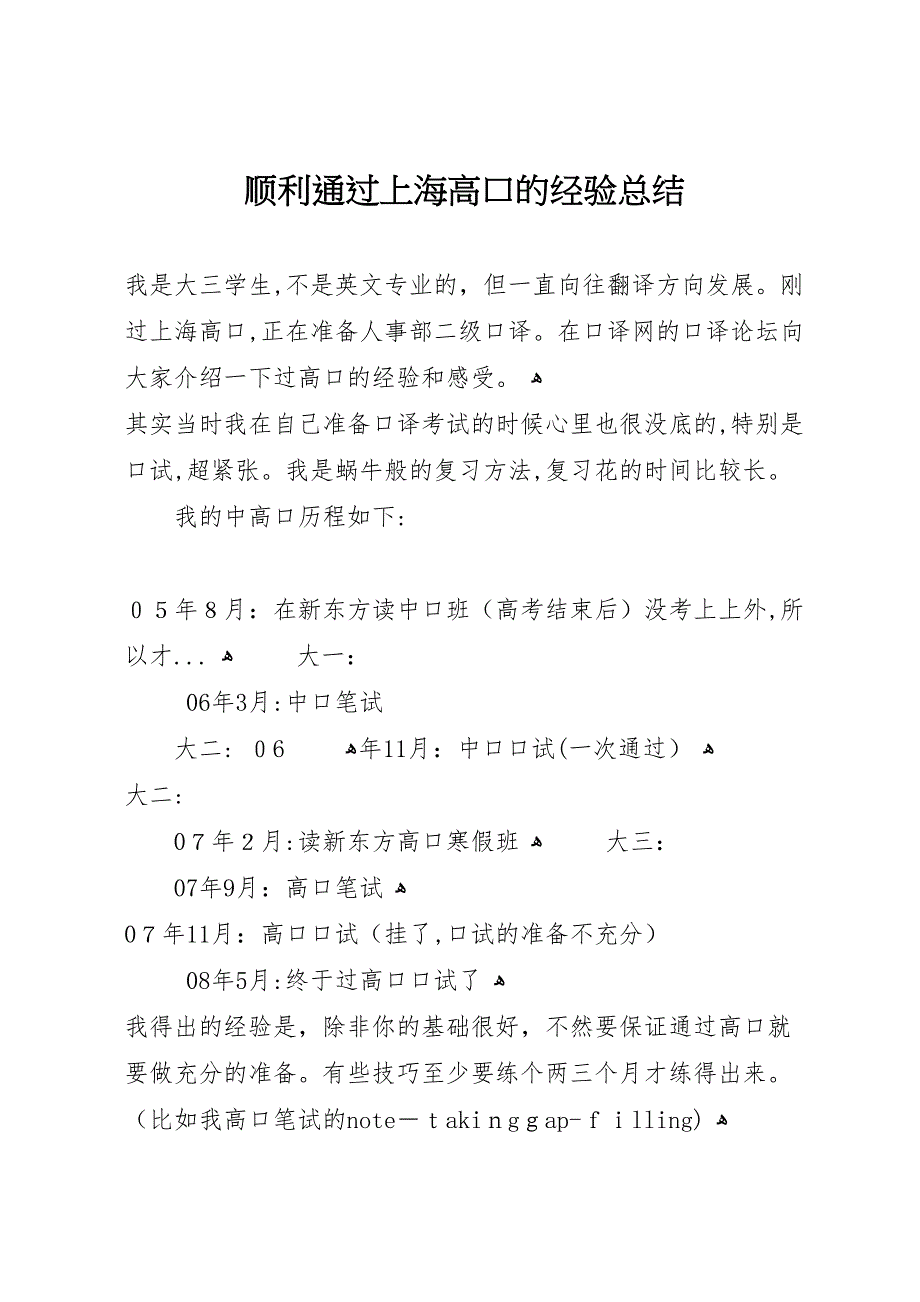 顺利通过上海高口的经验总结
我是大三学生,不是英文专业的，但一直向往翻译方向发展。刚
过上海高口,正在准备人事部二级口译。在口译网的口译论坛向
大家介绍一下过高口的经验和感受。 ﻫ
其实当时我在自己准备口译考试的时候心里也很没底的,特别是
口试,超紧张。我是蜗牛般的复习方法,复习花的时间比较长。
我的中高口历程如下:
０５年８月：在新东方读中口班（高考结束后）没考上上外,所
以才... ﻫ 大一：
06年3月:中口笔试
大二: ０6 ﻫ年11月：中口口试(一次通过） ﻫ
大二:
0７年２月:读新东方高口寒假班 ﻫ 大三：
07年9月：高口笔试 ﻫ
0７年11月：高口口试（挂了,口试的准备不充分）
08年5月:终于过高口口试了 ﻫ
我得出的经验是，除非你的基础很好，不然要保证通过高口就
要做充分的准备。有些技巧至少要练个两三个月才练得出来。
（比如我高口笔试的note－ｔakiｎgｇap-ｆｉlling) ﻫ